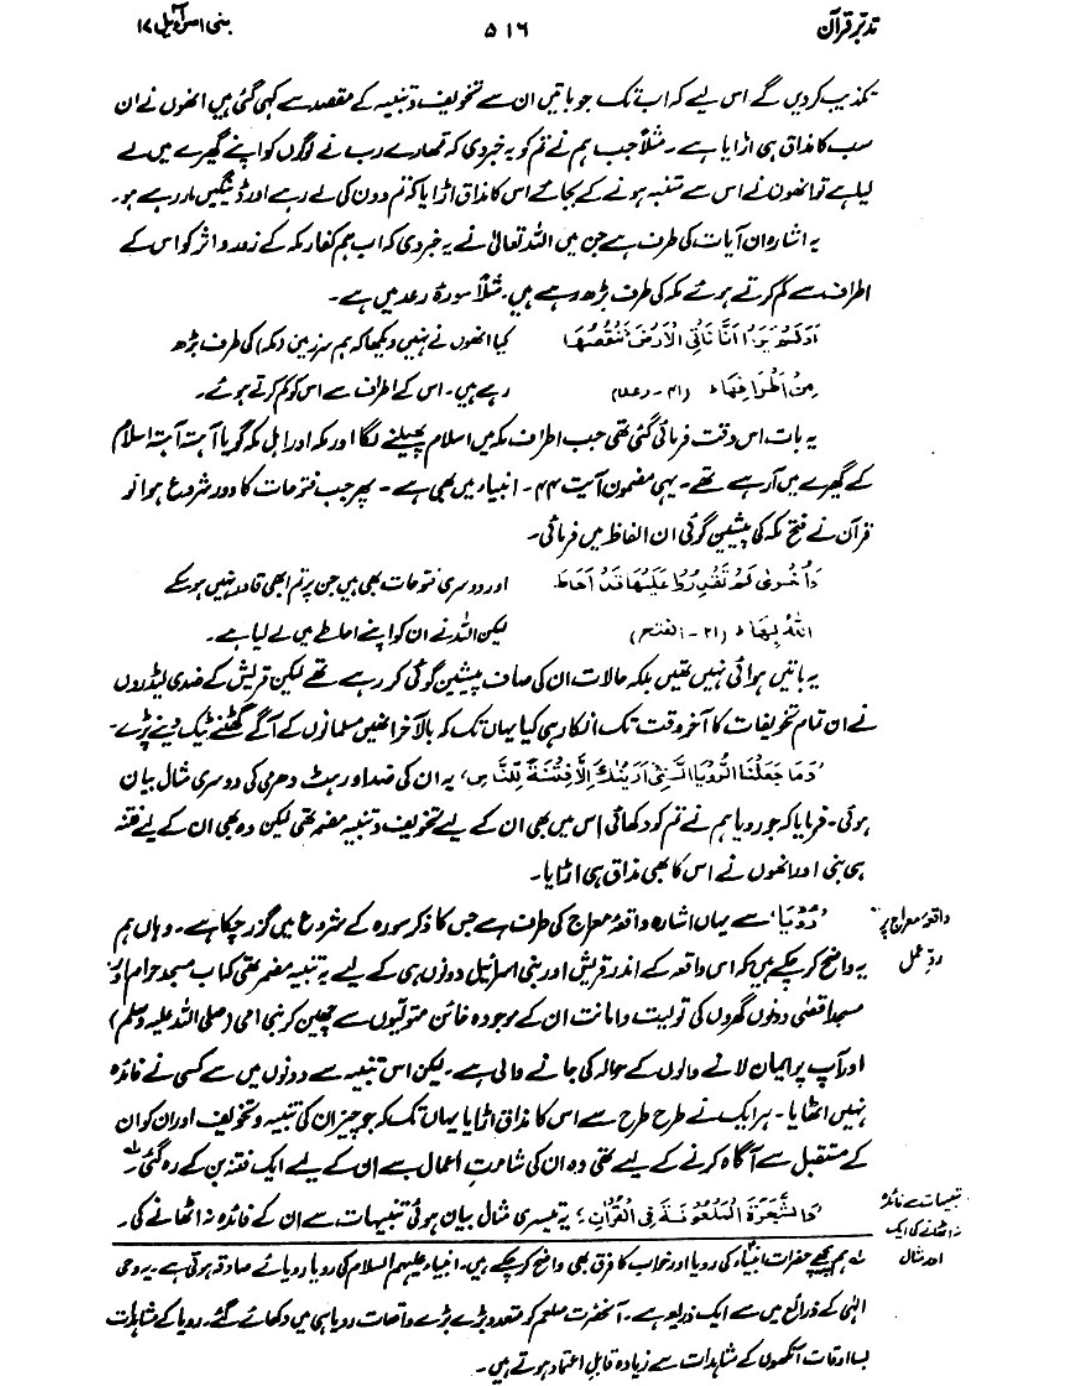 تدبر قرآن ۵۱۶ بنی اسرآءیل ۱۷
تکذیب کردیں گے اس لیے کہ اب تک جو باتیں ان سے تخویف و تنبیہ کے مقصد سے کہی گئی ہیں انھوں نے ان
سب کا مذاق ہی اڑایا ہے۔ مثلاً جب ہم نے تم کو یہ خبر دی کہ تمھارے رب نے لوگوں کو اپنے گھیرے میں لے
لیا ہے تو انھوں نے اس سے متنبہ ہونے کے بجائے اس کا مذاق اڑایا کہ تم دون کی لے رہے اور ڈینگیں مار رہے ہو۔
یہ اشارہ ان آیات کی طرف ہے جن میں اللہ تعالیٰ نے یہ خبر دی کہ اب ہم کفار مکہ کے زور و اثر کو اس کے
اطراف سے کم کرتے ہوئے مکہ کی طرف بڑھ رہے ہیں۔ مثلاً سورۂ رعد میں ہے۔
اَوَلَمْ يَرَوْا اَنَّا نَاْتِي الْاَرْضَ نَنْقُصُهَا کیا انھوں نے نہیں دیکھا کہ ہم سرزمین (مکہ) کی طرف بڑھ
مِنْ اَطْرَافِهَا ط (۴۱ - رعد) رہے ہیں۔ اس کے اطراف سے اس کو کم کرتے ہوئے۔
یہ بات اس وقت فرمائی گئی تھی جب اطراف مکہ میں اسلام پھیلنے لگا اور مکہ اور اہل مکہ گویا آہستہ آہستہ اسلام
کے گھیرے میں آ رہے تھے۔ یہی مضمون آیت ۴۴ - انبیاء میں بھی ہے۔ پھر جب فتوحات کا دور شروع ہوا تو
قرآن نے فتح مکہ کی پیشین گوئی ان الفاظ میں فرمائی۔
وَاُخْرٰى لَمْ تَقْدِرُوْا عَلَيْهَا قَدْ اَحَاطَ اور دوسری فتوحات بھی ہیں جن پر تم ابھی قادر نہیں ہو سکے
اللّٰهُ بِهَا ط (۲۱ - الفتح) لیکن اللہ نے ان کو اپنے احاطے میں لے لیا ہے۔
یہ باتیں ہوائی نہیں تھیں بلکہ حالات ان کی صاف پیشین گوئی کر رہے تھے لیکن قریش کے ضدی لیڈروں
نے ان تمام تخویفات کا آخر وقت تک انکار ہی کیا یہاں تک کہ بالآخر انھیں مسلمانوں کے آگے گھٹنے ٹیک دینے پڑے۔
'وَمَا جَعَلْنَا الرُّؤْيَا الَّتِيْ اَرَيْنٰكَ اِلَّا فِتْنَةً لِّلنَّاسِ'، یہ ان کی ضد اور ہٹ دھرمی کی دوسری مثال بیان
ہوئی۔ فرمایا کہ جو رویا ہم نے تم کو دکھائی اس میں بھی ان کے لیے تخویف و تنبیہ مضمر تھی لیکن وہ بھی ان کے لیے فتنہ
ہی بنی اور انھوں نے اس کا بھی مذاق ہی اڑایا۔
'رُؤْيَا' سے یہاں اشارہ واقعۂ معراج کی طرف ہے جس کا ذکر سورہ کے شروع میں گزر چکا ہے۔ وہاں ہم
واقعۂ معراج پر
ردِّ عمل
یہ واضح کر چکے ہیں کہ اس واقعہ کے اندر قریش اور بنی اسرائیل دونوں ہی کے لیے یہ تنبیہ مضمر تھی کہ اب مسجد حرام اور
مسجد اقصٰی دونوں گھروں کی تولیت و امانت ان کے موجودہ خائن متولیوں سے چھین کر نبی امی (صلی اللہ علیہ وسلم)
اور آپ پر ایمان لانے والوں کے حوالہ کی جانے والی ہے۔ لیکن اس تنبیہ سے دونوں میں سے کسی نے فائدہ
نہیں اٹھایا۔ ہر ایک نے طرح طرح سے اس کا مذاق اڑایا یہاں تک کہ جو چیز ان کی تنبیہ و تخویف اور ان کو ان
کے مستقبل سے آگاہ کرنے کے لیے تھی وہ ان کی شامتِ اعمال سے ان کے لیے ایک فتنہ بن کے رہ گئی۔ لہ
'وَالشَّجَرَةَ الْمَلْعُوْنَةَ فِي الْقُرْاٰنِ'؛ یہ تیسری مثال بیان ہوئی تنبیہات سے ان کے فائدہ نہ اٹھانے کی۔
تنبیہات سے فائدہ
نہ اٹھانے کی ایک
اور مثال
لہ ہم پیچھے حضرات انبیاءؑ کی رویا اور خواب کا فرق بھی واضح کر چکے ہیں۔ انبیاء علیہم السلام کی رویا رویائے صادقہ ہوتی ہے۔ یہ وحی
الٰہی کے ذرائع میں سے ایک ذریعہ ہے۔ آنحضرت صلعم کو متعدد بڑے بڑے واقعات رویا ہی میں دکھائے گئے۔ رویا کے مشاہدات
بسا اوقات آنکھوں کے مشاہدات سے زیادہ قابلِ اعتماد ہوتے ہیں۔